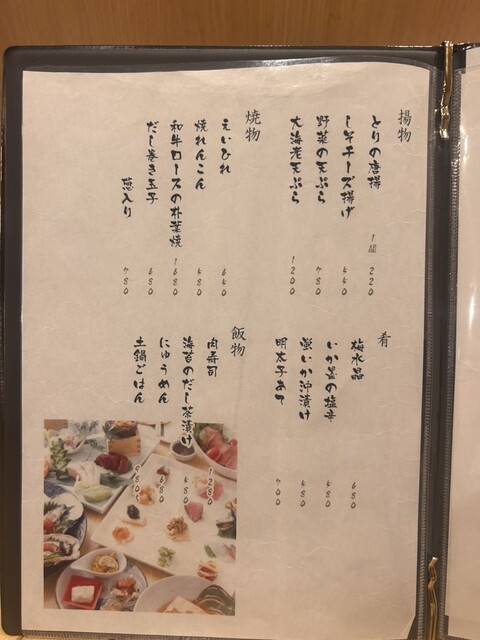 揚物
とりの唐揚 1個 220
しそチーズ揚げ
野菜の天ぷら 780
大海老天ぷら 1200
焼物
えいひれ
焼れんこん
和牛ロースの朴葉焼 1680
だし巻き玉子 680
葱入り 780
肴
梅水晶 680
いか墨の塩辛
蛍いか沖漬け
明太子あて 700
飯物
肉寿司 1280
海苔のだし茶漬け
にゅうめん 680
土鍋ごはん